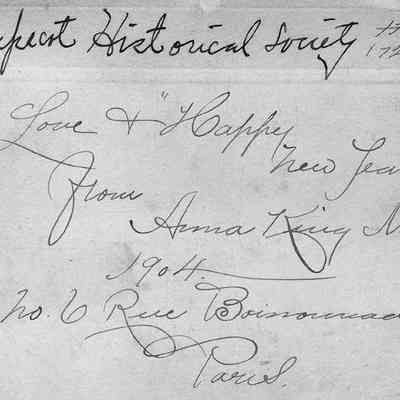 epscot Historical Society
Love & "Happy
New Yea
From
Anna King M
1904.
No. 6 Rue Boissonnad
Paris.